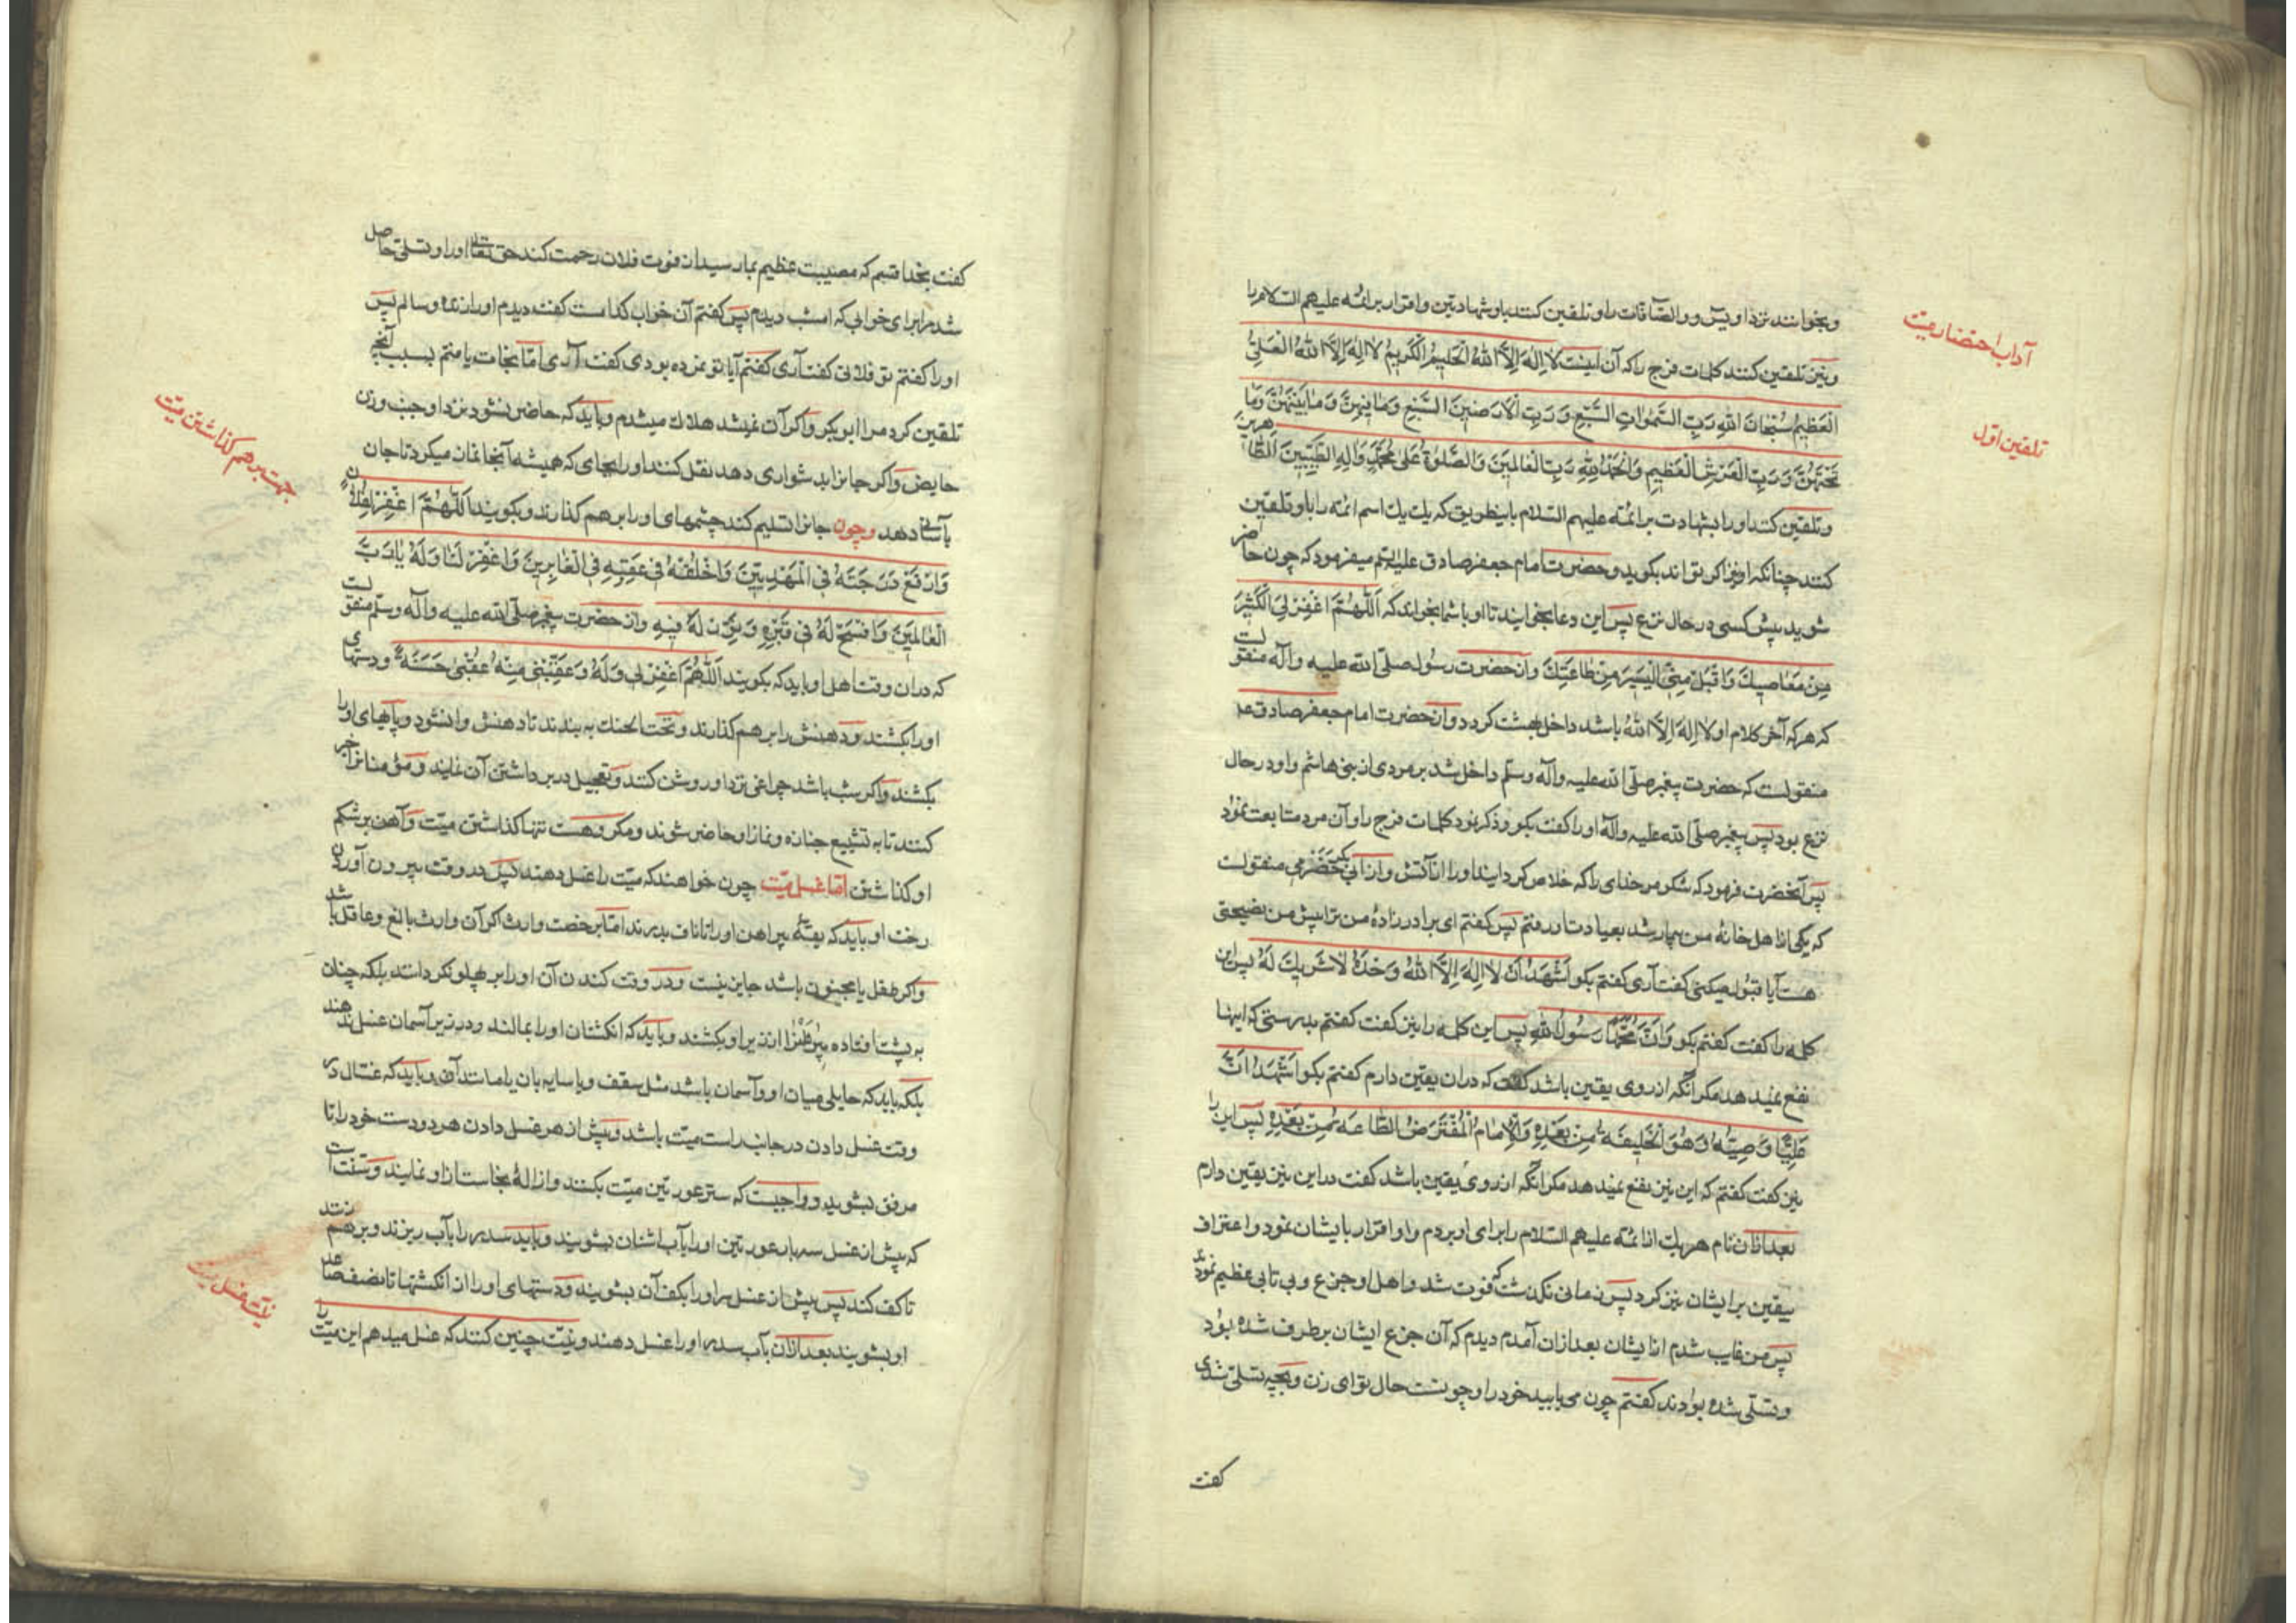 آداب احتضار میت
تلقین اول
و بخوانند نزد او یس و والصافات را و تلقین کنند باو شهادتین و اقرار بر ائمه علیهم السلام را
و نیز تلقین کنند کلمات فرج را که آن اینست لَا اِلٰهَ اِلَّا اللهُ الْحَلِیمُ الْکَرِیمُ لَا اِلٰهَ اِلَّا اللهُ الْعَلِیُّ
الْعَظِیمُ سُبْحَانَ اللهِ رَبِّ السَّمٰوَاتِ السَّبْعِ وَ رَبِّ الْاَرَضِینَ السَّبْعِ وَمَا فِیهِنَّ وَمَا بَیْنَهُنَّ وَمَا
تَحْتَهُنَّ وَ رَبِّ الْعَرْشِ الْعَظِیمِ وَالْحَمْدُ لِلّٰهِ رَبِّ الْعَالَمِینَ وَالصَّلٰوةُ عَلٰی مُحَمَّدٍ وَالِهِ الطَّیِّبِینَ الطَّاهِرِینَ
و تلقین کنند او را بشهادت بر ائمه علیهم السلام باینطریق که یك یك اسم ائمه را باو تلقین
کنند چنانکه او نیز اکر تواند بکوید و حضرت امام جعفر صادق علیه السلم میفرمود که چون حاضر
شوید پیش کسی در حال نزع پس این دعا بخوانید تا او با شما بخواند که اَللّٰهُمَّ اغْفِرْ لِیَ الْکَثِیرَ
مِنْ مَعَاصِیكَ وَاقْبَلْ مِنِّی الْیَسِیرَ مِنْ طَاعَتِكَ و از حضرت رسول صلی الله علیه و آله منقولست
که هرکه آخر کلام او لَا اِلٰهَ اِلَّا اللهُ باشد داخل بهشت کردد و از حضرت امام جعفر صادق ع
منقولست که حضرت پیغمبر صلی الله علیه و آله وسلم داخل شد بر مردی از بنی هاشم و او در حال
نزع بود پس پیغمبر صلی الله علیه و آله او را کفت بکو و ذکر نمود کلمات فرج را و آن مرد متابعت نمود
پس آنحضرت فرمود که شکر مر خدای را که خلاص کردانید او را از آتش و از ابی بکر حضرمی منقولست
که یکی از اهل خانهٔ من بیمار شد بعیادت او رفتم پس کفتم ای برادرزادهٔ من ترا پیش من نصیحتی
هست آیا قبول میکنی کفت آری کفتم بکو اَشْهَدُ اَنْ لَا اِلٰهَ اِلَّا اللهُ وَحْدَهُ لَا شَرِیكَ لَهُ پس این
کلمه را کفت کفتم بکو وَاَنَّ مُحَمَّدًا رَسُولُ اللهِ پس این کلمه را نیز کفت کفتم بدرستی که اینها
نفع نمیدهد مکر انکه از روی یقین باشد کفت که در ان یقین دارم کفتم بکو اَشْهَدُ اَنَّ
عَلِیًّا وَصِیُّهُ وَ هُوَ الْخَلِیفَةُ مِنْ بَعْدِهِ وَالْاِمَامُ الْمُفْتَرَضُ الطَّاعَةِ مِنْ بَعْدِهِ پس این را
نیز کفت کفتم که این نیز نفع نمیدهد مکر انکه از روی یقین باشد کفت در این نیز یقین دارم
بعد ازان نام هر یك از ائمه علیهم السلام را برای او بردم و او اقرار بایشان نمود و اعتراف
بیقین بر ایشان نیز کرد پس زمانی نکذشت که فوت شد و اهل او جزع و بی تابی عظیم نمودند
پس من غایب شدم از ایشان بعد ازان آمدم دیدم که آن جزع ایشان برطرف شده بود
و تسلی شده بودند کفتم چون می یابید خود را و چونست حال تو ای زن و بچه تسلی شدی
کفت
کفت بخدا قسم که مصیبت عظیم بما رسید از فوت فلان رحمت کند حق تعالی او را و تسلی حاصل
شد مرا برای خوابی که امشب دیدم پس کفتم آن خواب کدامست کفت دیدم او را زنده و سالم پس
او را کفتم تو فلانی کفت آری کفتم آیا تو نمرده بودی کفت آری اما نجات یافتم بسبب آنچه
تلقین کرد مرا ابوبکر و اکر آن نمیشد هلاك میشدم و باید که حاضر نشود نزد او جنب و زن
حایض و اکر جانرا بدشواری دهد نقل کنند او را بجای که همیشه آنجا نماز میکرد تا جان
بآسانی دهد و چون جانرا تسلیم کند چشمهای او را بر هم کذارند و بکویند اَللّٰهُمَّ اغْفِرْ لِفُلَانٍ
وَارْفَعْ دَرَجَتَهُ فِی الْمَهْدِیِّینَ وَاخْلُفْهُ فِی عَقِبِهِ فِی الْغَابِرِینَ وَاغْفِرْ لَنَا وَلَهُ یَا رَبَّ
الْعَالَمِینَ وَافْسَحْ لَهُ فِی قَبْرِهِ وَ نَوِّرْ لَهُ فِیهِ و از حضرت پیغمبر صلی الله علیه و آله وسلم منقولست
که در ان وقت اهل او باید که بکویند اَللّٰهُمَّ اغْفِرْ لِی وَلَهُ وَعَقِّبْنِی مِنْهُ عُقْبٰی حَسَنَةً و دستهای
او را بکشند و دهنش را بر هم کذارند و تحت الحنك به بندند تا دهنش وا نشود و پاهای او را
بکشند و اکر شب باشد چراغی نزد او روشن کنند و تعجیل در برداشتن آن نمایند و مؤمنانرا خبر
کنند تا به تشییع جنازه و نماز او حاضر شوند و مکروهست تنها کذاشتن میت و آهن بر شکم
او کذاشتن اما غسل میت چون خواهند که میت را غسل دهند پس در وقت بیرون آوردن
رخت او باید که یقهٔ پیراهن او را تا ناف بدرند اما برخصت وارث اکر آن وارث بالغ و عاقل باشد
و اکر طفل یا مجنون باشد جایز نیست و در وقت کندن آن او را بر پهلو نکردانند بلکه چنان
به پشت افتاده پیراهنرا از زیر او بکشند و باید که انکشتان او را بمالند و در زیر آسمان غسل ندهند
بلکه باید که حایلی میان او و آسمان باشد مثل سقف و یا سایه بان یا مانند آن و باید که غسال در
وقت غسل دادن در جانب راست میت باشد و پیش از هر غسل دادن هر دو دست خود را تا
مرفق بشوید و واجبست که ستر عورتین میت بکنند و ازالهٔ نجاست از او نمایند و سنت است
که پیش از غسل سه بار عورتین او را بآب اشنان بشویند و باید سدر را بآب ریزند و برهم زنند
تا کف کند پس پیش از غسل سر او را بکف آن بشویند و دستهای او را از انکشتها تا نصف صاعد
او بشویند بعد ازان بآب سدر او را غسل دهند و نیت چنین کنند که غسل میدهم این میت را
جهت برهم کذاشتن میت
نیت غسل میت